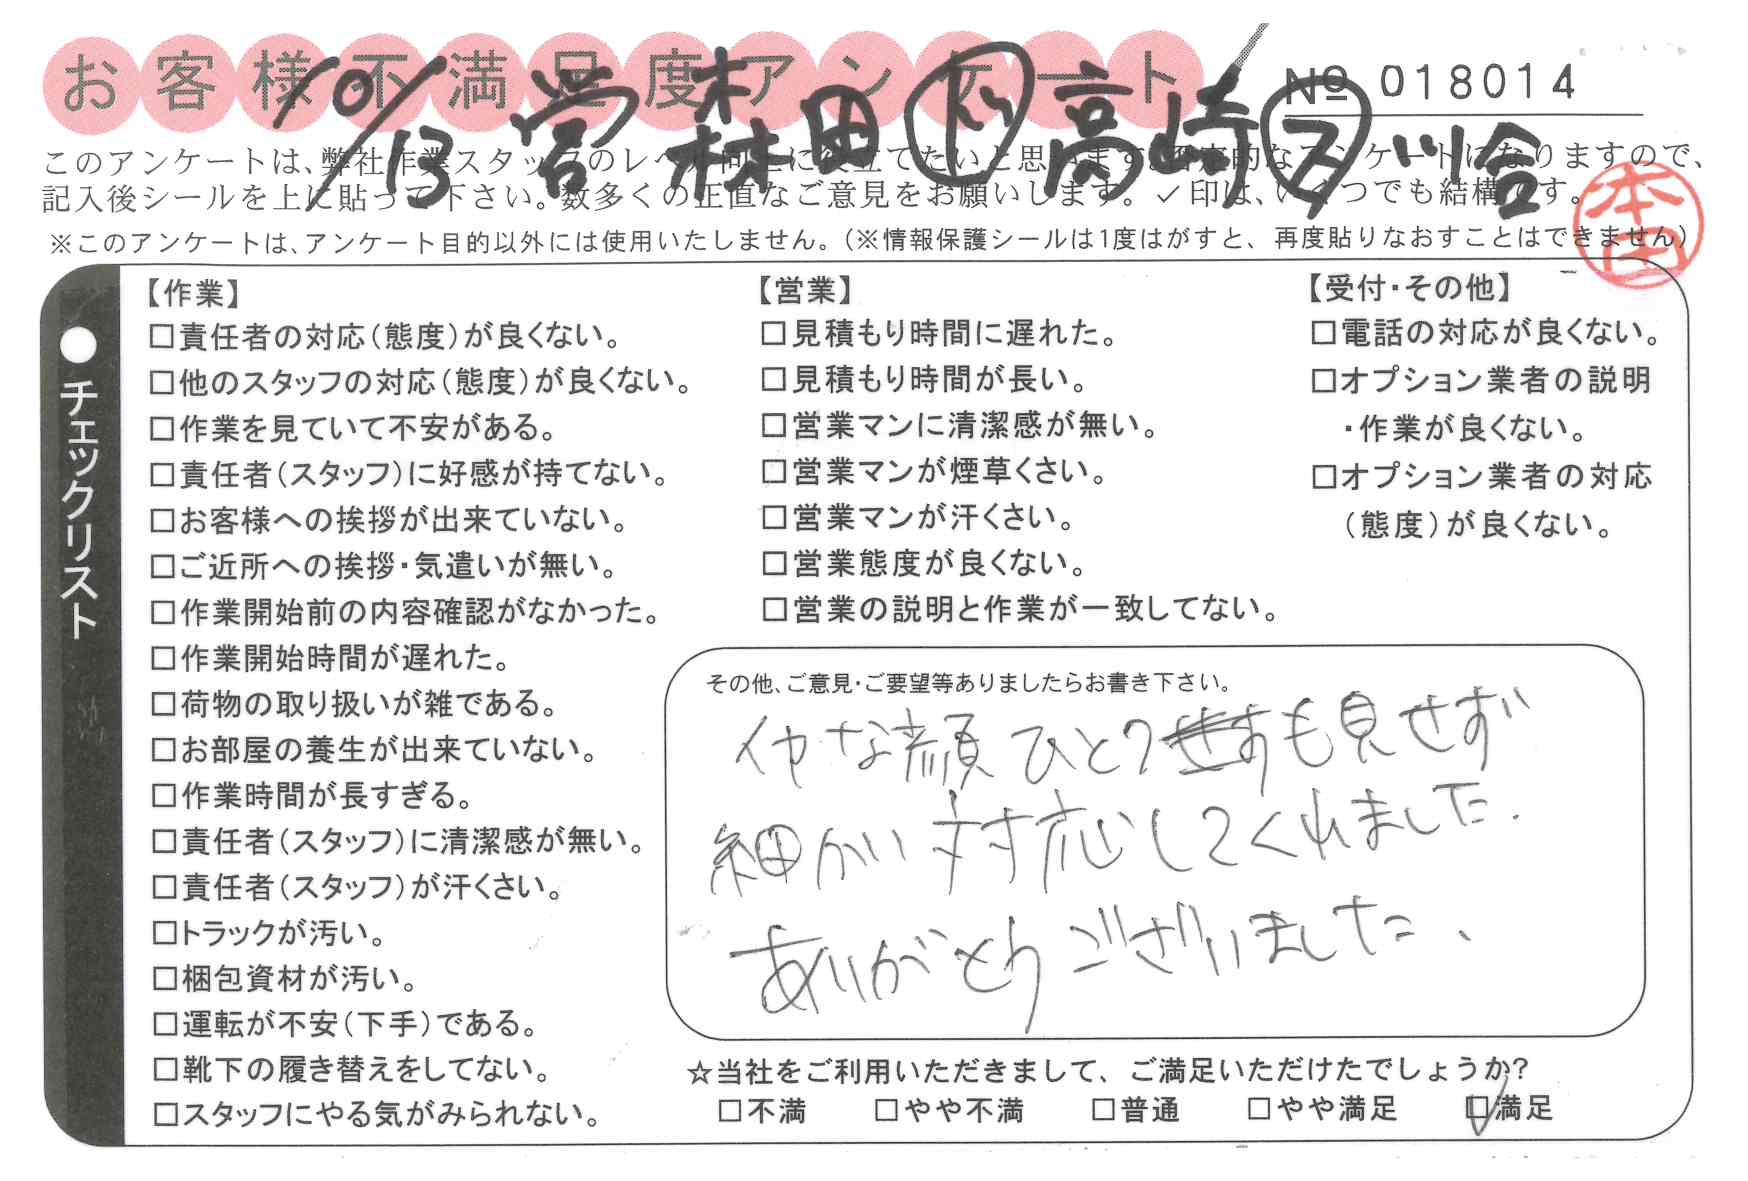 お客様不満足度アンケート
№ 018014
10/13 営 森田 ド 高崎 ス 川合
このアンケートは、弊社作業スタッフのレベル向上に役立てたいと思います。否定的なアンケートになりますので、
記入後シールを上に貼って下さい。数多くの正直なご意見をお願いします。✓印は、いくつでも結構です。
本田
※このアンケートは、アンケート目的以外には使用いたしません。(※情報保護シールは1度はがすと、再度貼りなおすことはできません)
●チェックリスト
【作業】
□責任者の対応(態度)が良くない。
□他のスタッフの対応(態度)が良くない。
□作業を見ていて不安がある。
□責任者(スタッフ)に好感が持てない。
□お客様への挨拶が出来ていない。
□ご近所への挨拶・気遣いが無い。
□作業開始前の内容確認がなかった。
□作業開始時間が遅れた。
□荷物の取り扱いが雑である。
□お部屋の養生が出来ていない。
□作業時間が長すぎる。
□責任者(スタッフ)に清潔感が無い。
□責任者(スタッフ)が汗くさい。
□トラックが汚い。
□梱包資材が汚い。
□運転が不安(下手)である。
□靴下の履き替えをしてない。
□スタッフにやる気がみられない。
【営業】
□見積もり時間に遅れた。
□見積もり時間が長い。
□営業マンに清潔感が無い。
□営業マンが煙草くさい。
□営業マンが汗くさい。
□営業態度が良くない。
□営業の説明と作業が一致してない。
【受付・その他】
□電話の対応が良くない。
□オプション業者の説明
・作業が良くない。
□オプション業者の対応
(態度)が良くない。
その他、ご意見・ご要望等ありましたらお書き下さい。
イヤな顔ひとつも見せず
細かい対応してくれました.
ありがとうございました、
☆当社をご利用いただきまして、ご満足いただけたでしょうか?
□不満 □やや不満 □普通 □やや満足 ☑満足